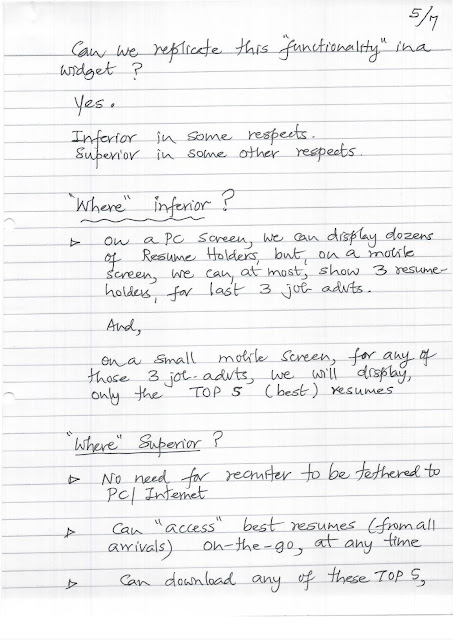 5/7
Can we replicate this "functionality" in a
widget ?
Yes.
Inferior in some respects.
Superior in some other respects.
"Where" inferior ?
▷ on a PC screen, we can display dozens
of Resume Holders, but, on a mobile
screen, we can, at most, show 3 resume-
holders, for last 3 job advts.
And,
on a small mobile screen, for any of
those 3 job-advts, we will display,
only the TOP 5 (best) resumes
"Where" Superior ?
▷ No need for recruiter to be tethered to
PC/ Internet
▷ Can "access" best resumes (from all
arrivals) on-the-go, at any time
▷ Can download any of these TOP 5,